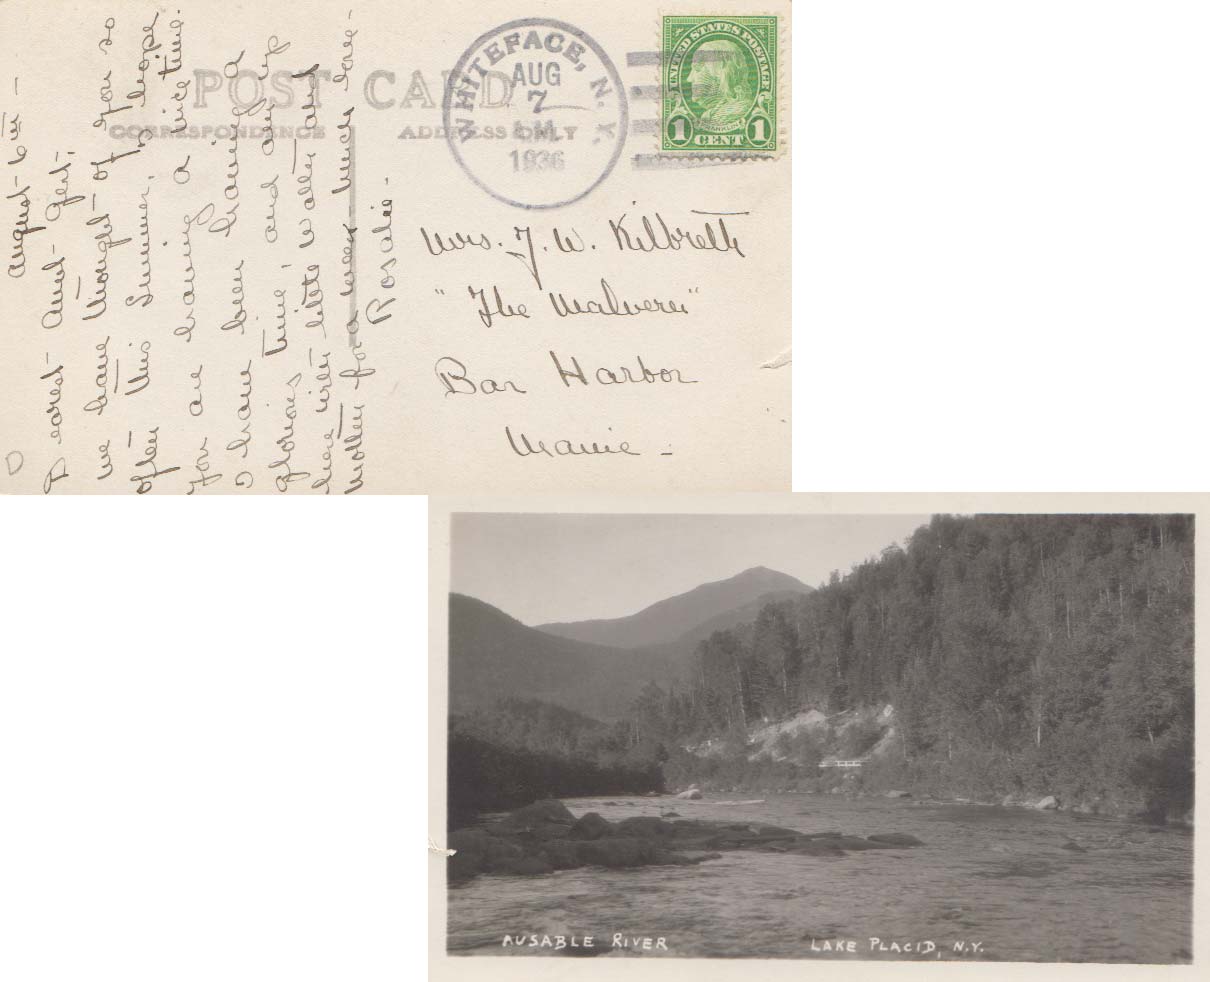 POST CARD
CORRESPONDENCE
ADDRESS ONLY
WHITEFACE, N.Y.
AUG
7
A.M.
1936
UNITED STATES POSTAGE
FRANKLIN
1 CENT 1
August 6th —
Dearest Aunt Gert:
We have thought of you so
often this Summer. I hope
you are having a nice time.
I have been having a
glorious time, and am up
here with Walter and
Mother for a week. Much love -
Rosalie.
Mrs. J. W. Kilbreth
"The Malvern"
Bar Harbor
Maine -
AUSABLE RIVER
LAKE PLACID, N.Y.